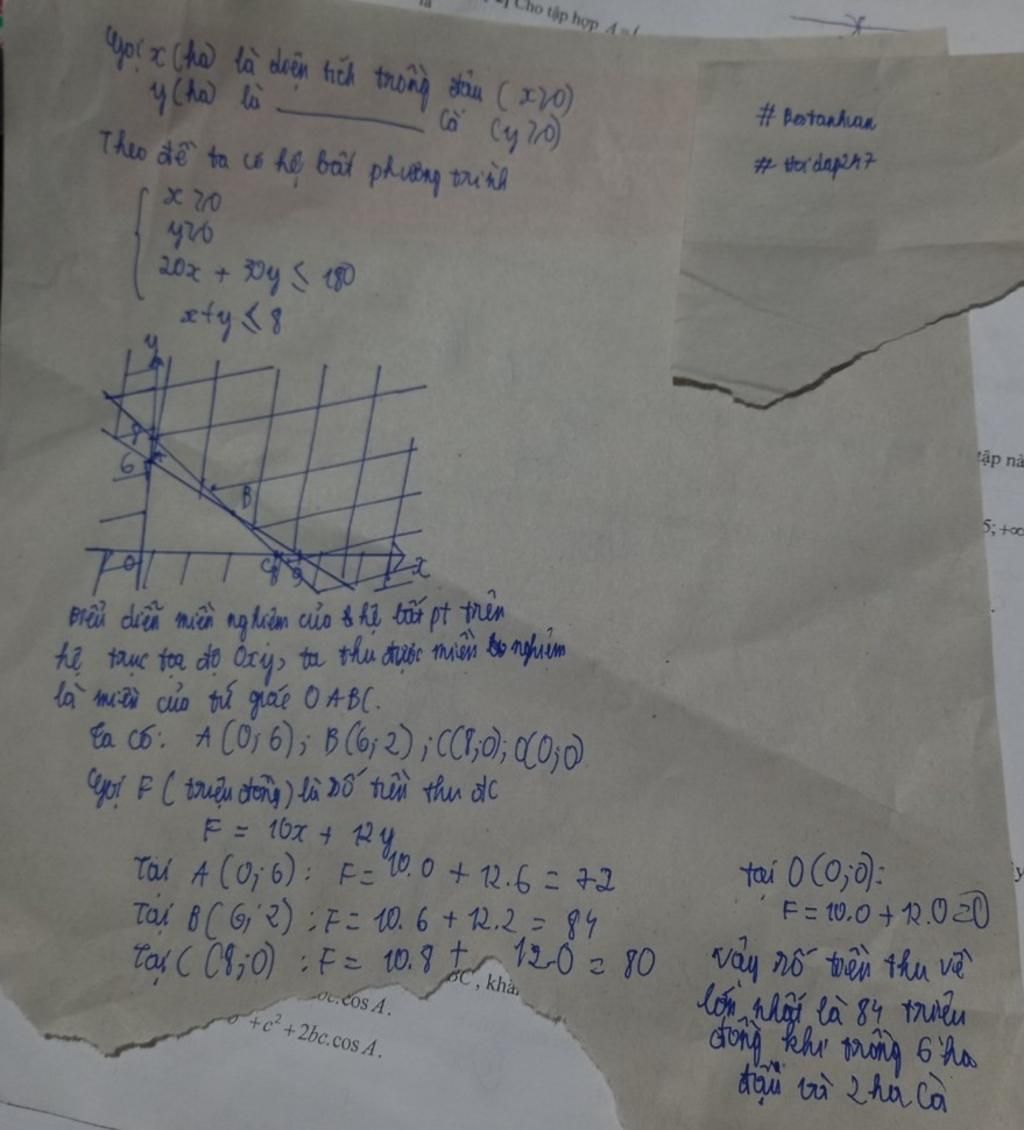 2) Cho tập hợp A =
Gọi x (ha) là diện tích trồng đậu (x≥0)
y (ha) là ——— cà (y≥0)
# Bestanhuan
# Hoidap247
Theo đề ta có hệ bất phương trình
x≥0
y≥0
20x + 30y ≤ 180
x+y ≤ 8
y
8
6 A
B
O C 8 9 x
Biểu diễn miền nghiệm của hệ bất pt trên
hệ trục tọa độ Oxy, ta thu được miền nghiệm
là miền của tứ giác OABC.
Ta có: A(0;6); B(6;2); C(8;0); O(0;0)
Gọi F (triệu đồng) là số tiền thu đc
F = 10x + 12y
Tại A(0;6): F= 10.0 + 12.6 = 72
Tại B(6;2): F= 10.6 + 12.2 = 84
Tại C(8;0): F= 10.8 + 12.0 = 80
tại O(0;0):
F=10.0+12.0=0
Vậy số tiền thu về
lớn nhất là 84 triệu
đồng khi trồng 6 ha
đậu và 2 ha cà
tập nà
5; +∞
BC, khẳ
bc.cos A.
+c² + 2bc.cos A.